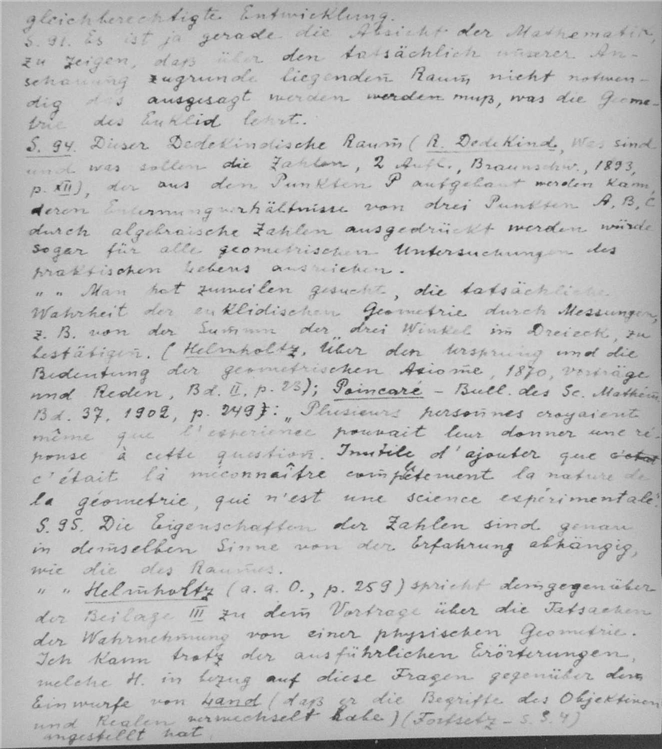 gleichberechtigte Entwicklung.
S. 91. Es ist ja gerade die Absicht der Mathematik,
zu zeigen, daß über den tatsächlich unserer An-
schauung zugrunde liegenden Raum nicht notwen-
dig das ausgesagt werden werden muß, was die Geome-
trie des Euklid lehrt.
S. 94. Dieser Dedekindische Raum (R. Dedekind, Was sind
und was sollen die Zahlen, 2 Aufl., Braunschw., 1893,
p. XII), der aus den Punkten P aufgebaut werden kann,
deren Entfernungverhältnisse von drei Punkten A, B, C
durch algebraische Zahlen ausgedrückt werden würde
sogar für alle geometrischen Untersuchungen des
praktischen Lebens ausreichen.
" " Man hat zuweilen gesucht, die tatsächliche
Wahrheit der euklidischen Geometrie durch Messungen,
z. B. von der Summe der drei Winkel im Dreieck, zu
bestätigen. (Helmholtz, Über den Ursprung und die
Bedeutung der geometrischen Axiome, 1870, Vorträge
und Reden, Bd. II, p. 23); Poincaré - Bull. des Sc. Mathém.
Bd. 37, 1902, p. 249): „Plusieurs personnes croyaient
même que l'esperience pouvait leur donner une ré-
ponse à cette question. Inutile d'ajouter que
c'était là méconnaître complètement la nature de
la géometrie, qui n'est une science espérimentale."
S. 95. Die Eigenschaften der Zahlen sind genau
in demselben Sinne von der Erfahrung abhängig,
wie die des Raumes.
" " Helmholtz (a. a. O., p. 259) spricht demgegenüber
der Beilage III zu dem Vortrage über die Tatsachen
der Wahrnehmung von einer physischen Geometrie.
Ich kann trotz der ausführlichen Erörterungen,
welche H. in bezug auf diese Fragen gegenüber dem
Einwurfe von Land (daß er die Begriffe des Objektiven
und Realen verwechselt habe) (Fortsetz - S. 9. 4)
angestellt hat